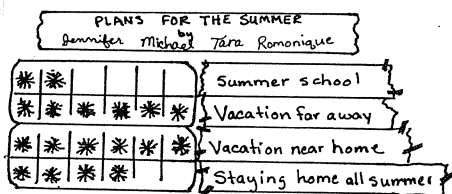 PLANS FOR THE SUMMER
by
Jennifer Michael Tara Romonique
Summer school
Vacation far away
Vacation near home
Staying home all summer